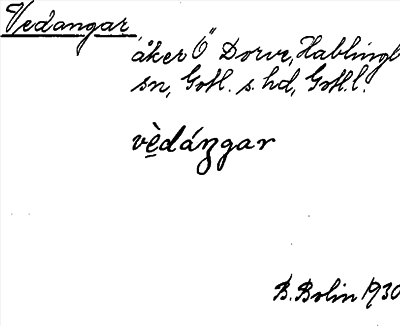 Vedangar,
åker Ö Dorve, Hablingbo
sn, Gotl. s. hd, Gotl. l.
vèdáŋgar
B. Bolin 1930